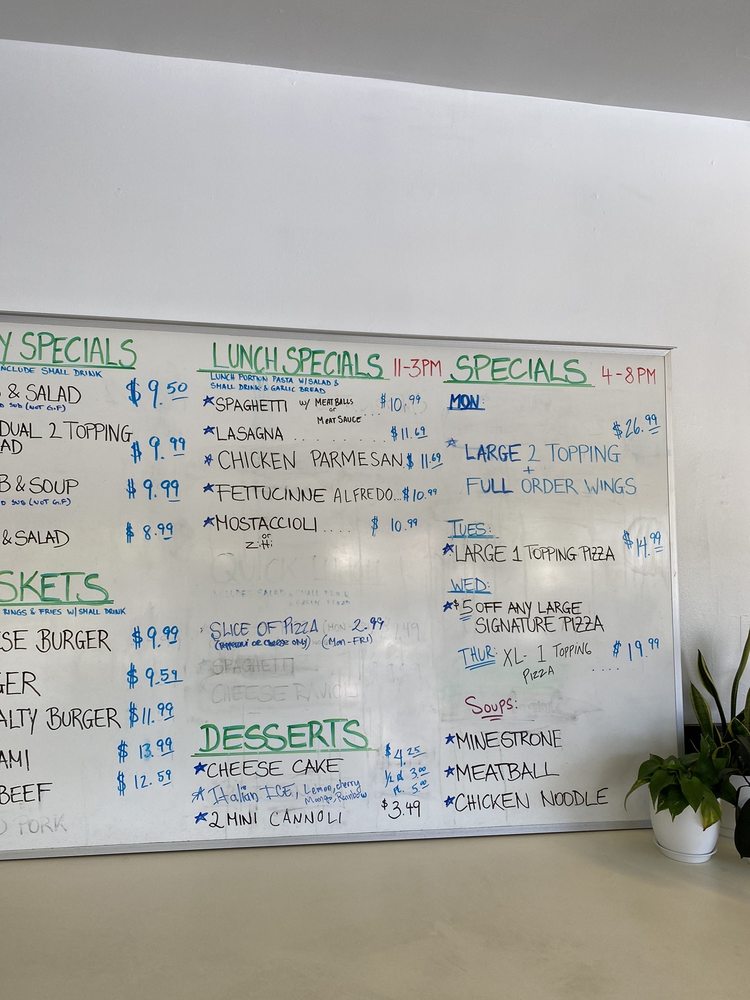 Y SPECIALS
NCLUDE SMALL DRINK
& SALAD $9.50
SUB (NOT G.F)
DUAL 2 TOPPING
AD $9.99
B & SOUP $9.99
SUB (NOT G.F)
& SALAD $8.99
SKETS
RINGS & FRIES W/ SMALL DRINK
SE BURGER $9.99
GER $9.59
ALTY BURGER $11.99
AMI $13.99
BEEF $12.59
PORK
LUNCH SPECIALS 11-3PM
LUNCH PORTION PASTA W/SALAD &
SMALL DRINK & GARLIC BREAD
★SPAGHETTI W/ MEATBALLS $10.99
or
MEAT SAUCE....
★LASAGNA .......... $11.69
★CHICKEN PARMESAN $11.69
★FETTUCINNE ALFREDO...$10.99
★MOSTACCIOLI .... $10.99
or
Ziti
QUICK
SLICE OF PIZZA 2.99
(PEPPERONI OR CHEESE ONLY) (MON-FRI)
SPAGHETTI
CHEESE RAVIOLI
DESSERTS
★CHEESE CAKE $4.25
★Italian ICE, Lemon, cherry 3.00
Mango, Rainbow 5.00
★2 MINI CANNOLI $3.49
SPECIALS 4-8PM
MON:
$26.99
★LARGE 2 TOPPING
+
FULL ORDER WINGS
TUES:
★LARGE 1 TOPPING PIZZA $14.99
WED:
★$5 OFF ANY LARGE
SIGNATURE PIZZA
THUR: XL- 1 TOPPING $19.99
PIZZA ....
SOUPS:
★MINESTRONE
★MEATBALL
★CHICKEN NOODLE